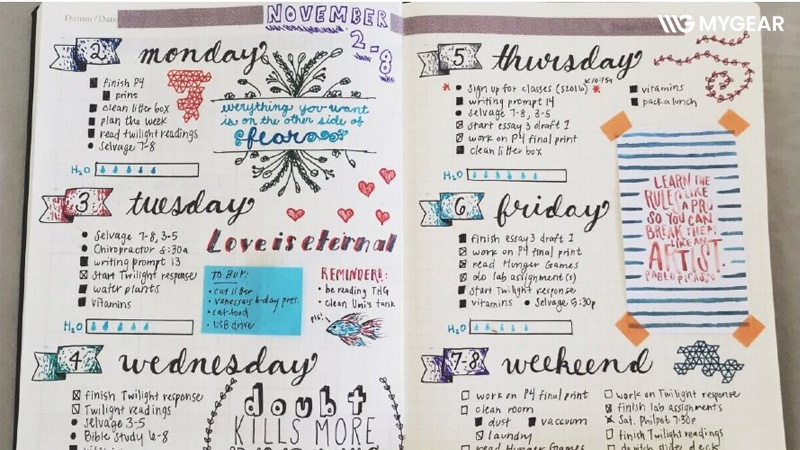 MYGEAR
Datum / Date
NOVEMBER
2-8
2 monday
finish P4
print
clean litter box
plan the week
read twilight readings
Selvage 7-8
H₂O
everything you want
is on the other side of
fear
3 tuesday
Selvage 7-8, 3-5
Chiropractor 8:30a
writing prompt 13
Start Twilight response
water plants
vitamins
H₂O
Love is eternal
TO BUY:
cat litter
vanessa's b-day pres.
cat food
USB drive
REMINDER!:
be reading THG
clean Umi's tank
pls!
4 wednesday
finish Twilight response
Twilight readings
Selvage 3-5
Bible Study 6-8
doubt
KILLS MORE
5 thursday
Sign up for classes (S2016)
writing prompt 14
Selvage 7-8, 3-5
Start essay 3 draft 1
work on P4 final print
clean litter box
vitamins
pack a lunch
H₂O
LEARN THE
RULES LIKE
A PRO
SO YOU CAN
BREAK THEM
LIKE AN
ARTIST!
PABLO PICASSO
6 friday
finish essay 3 draft 1
work on P4 final print
read Hunger Games
do lab assignment(s)
Start Twilight response
vitamins
Selvage 5:30p
H₂O
7-8 weekend
work on P4 final print
clean room
dust
vacuum
laundry
read Hunger Games
work on Twilight response
finish lab assignments
Sat. Philpot 7:30p
finish Twilight readings